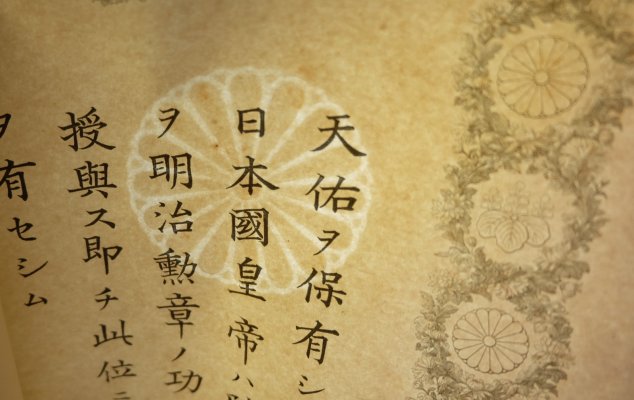 天佑ヲ保有シ
日本國皇帝ハ
ヲ明治勲章ノ功
授與ス即チ此位ニ
ヲ有セシム